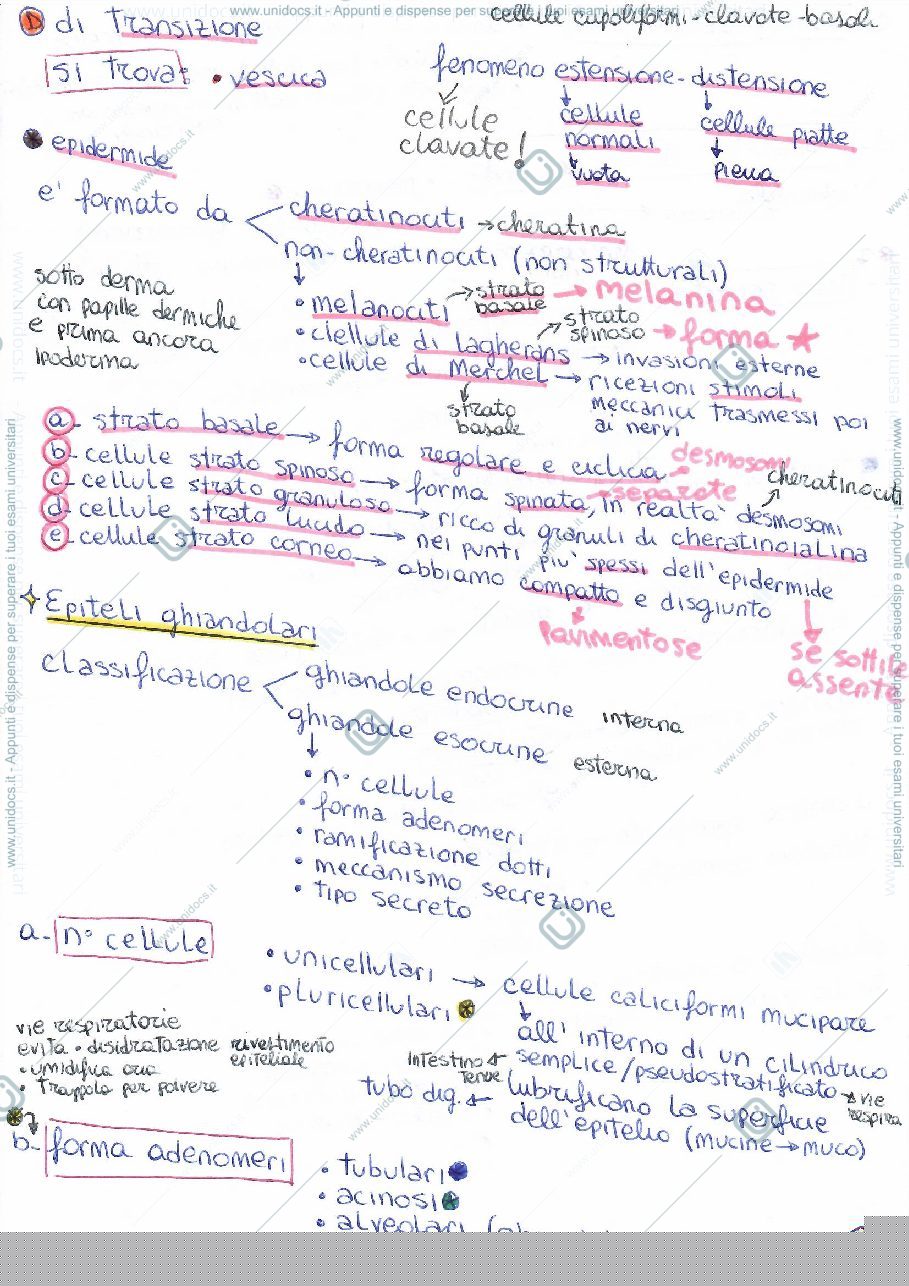 www.unidocs.it - Appunti e dispense per superare i tuoi esami universitari
D di transizione
cellule cupoliformi - clavate - basali
si trova: • vescica
fenomeno estensione - distensione
cellule clavate!
cellule normali
vuota
cellule piatte
piena
• epidermide
e' formato da
cheratinociti → cheratina
non-cheratinociti (non strutturali)
sotto derma
con papille dermiche
e prima ancora
ipoderma
• melanociti → strato basale → melanina
• clellule di Lagherans → strato spinoso → forma ★
→ invasioni esterne
• cellule di Merchel → ricezioni stimoli
meccanici trasmessi poi
ai nervi
strato
basale
a - strato basale → forma regolare e ciclica - desmosomi
b - cellule strato spinoso → forma spinata, in realtà desmosomi
separate
cheratinociti
c - cellule strato granuloso → ricco di granuli di cheratinoialina
d - cellule strato lucido → nei punti più spessi dell'epidermide
e - cellule strato corneo → abbiamo compatto e disgiunto
pavimentose
se sottile
assente
Epiteli ghiandolari
classificazione
ghiandole endocrine interna
ghiandole esocrine esterna
• n° cellule
• forma adenomeri
• ramificazione dotti
• meccanismo secrezione
• tipo secreto
a - n° cellule
• unicellulari → cellule caliciformi mucipare
• pluricellulari
all' interno di un cilindrico
semplice/pseudostratificato → vie
respira
intestino
tenue
tubo dig. ← lubrificano la superficie
dell'epitelio (mucine → muco)
vie respiratorie
evita • disidratazione rivestimento
epiteliale
• umidifica aria
• trappola per polvere
b - forma adenomeri
• tubulari
• acinosi
• alveolari